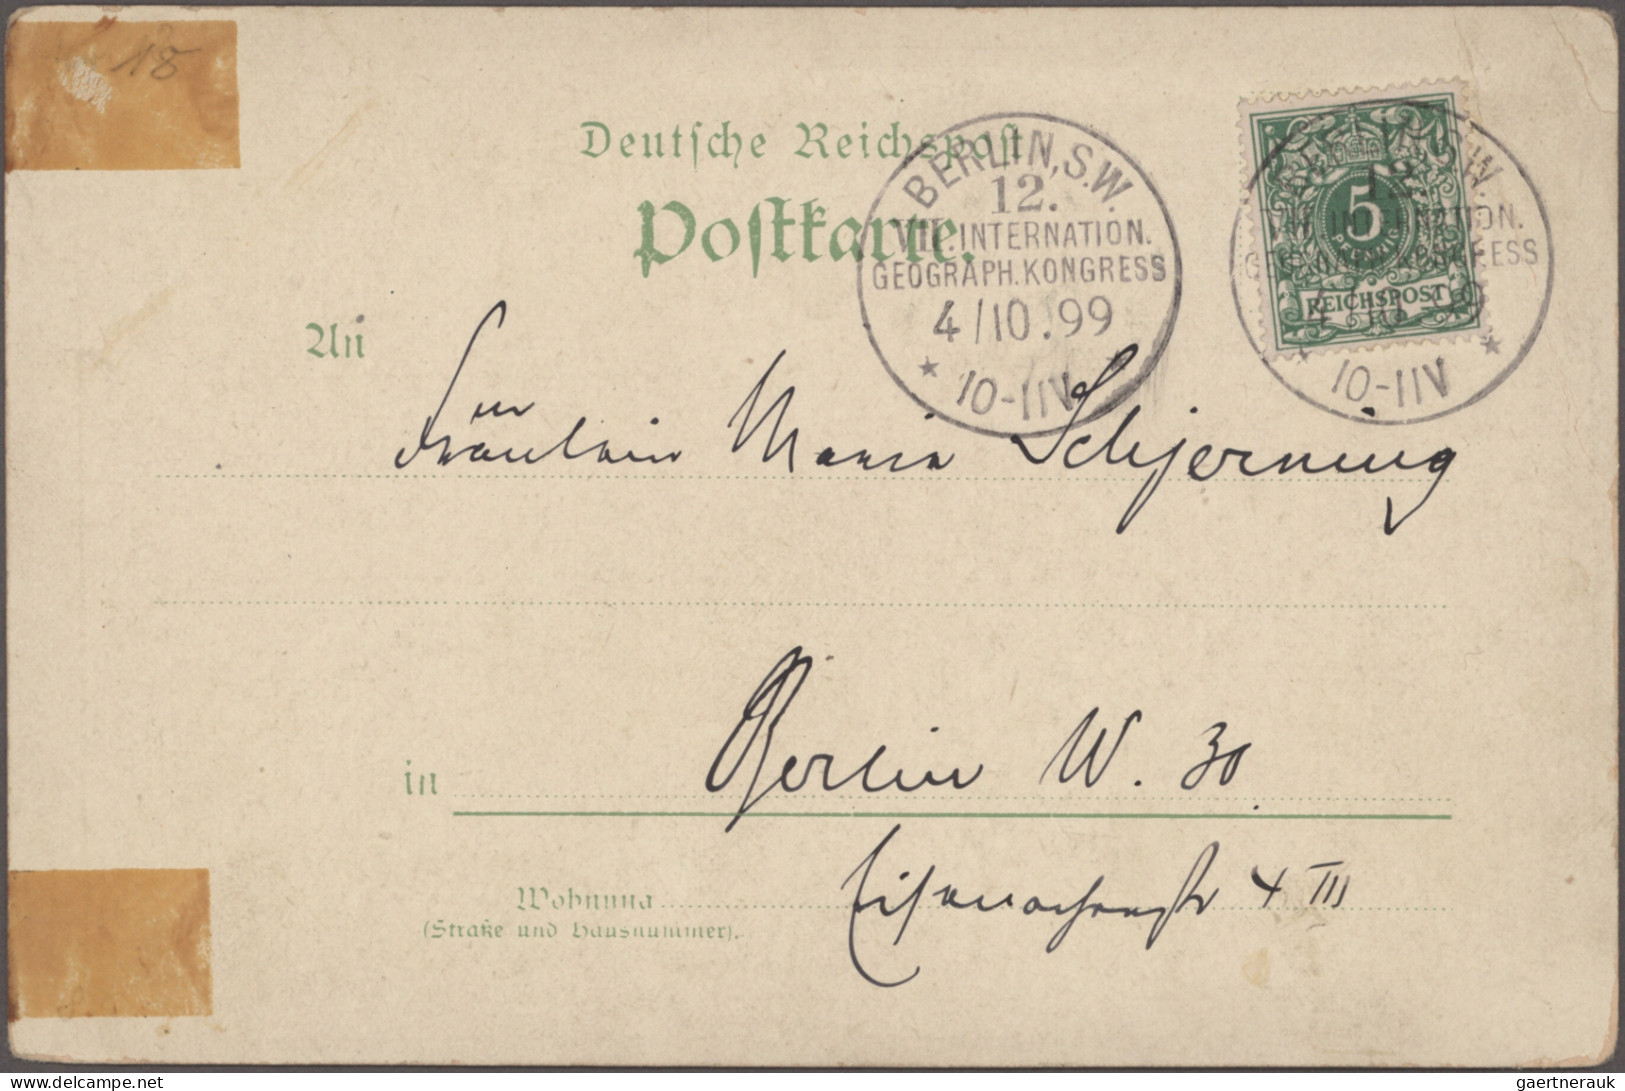 18
Deutſche Reichspoſt
Poſtkarte.
BERLIN, S.W.
12.
VII. INTERNATION.
GEOGRAPH. KONGRESS
4/10.99
10-11V
BERLIN, S.W.
12.
VII. INTERNATION.
GEOGRAPH. KONGRESS
4/10.99
10-11V
5
PFENNIG
REICHSPOST
An
Fräulein Maria Schjerning
in Berlin W. 30.
Wohnung Eisenacherstr 4 III
(Straße und Hausnummer).
www.delcampe.net
gaertnerauk